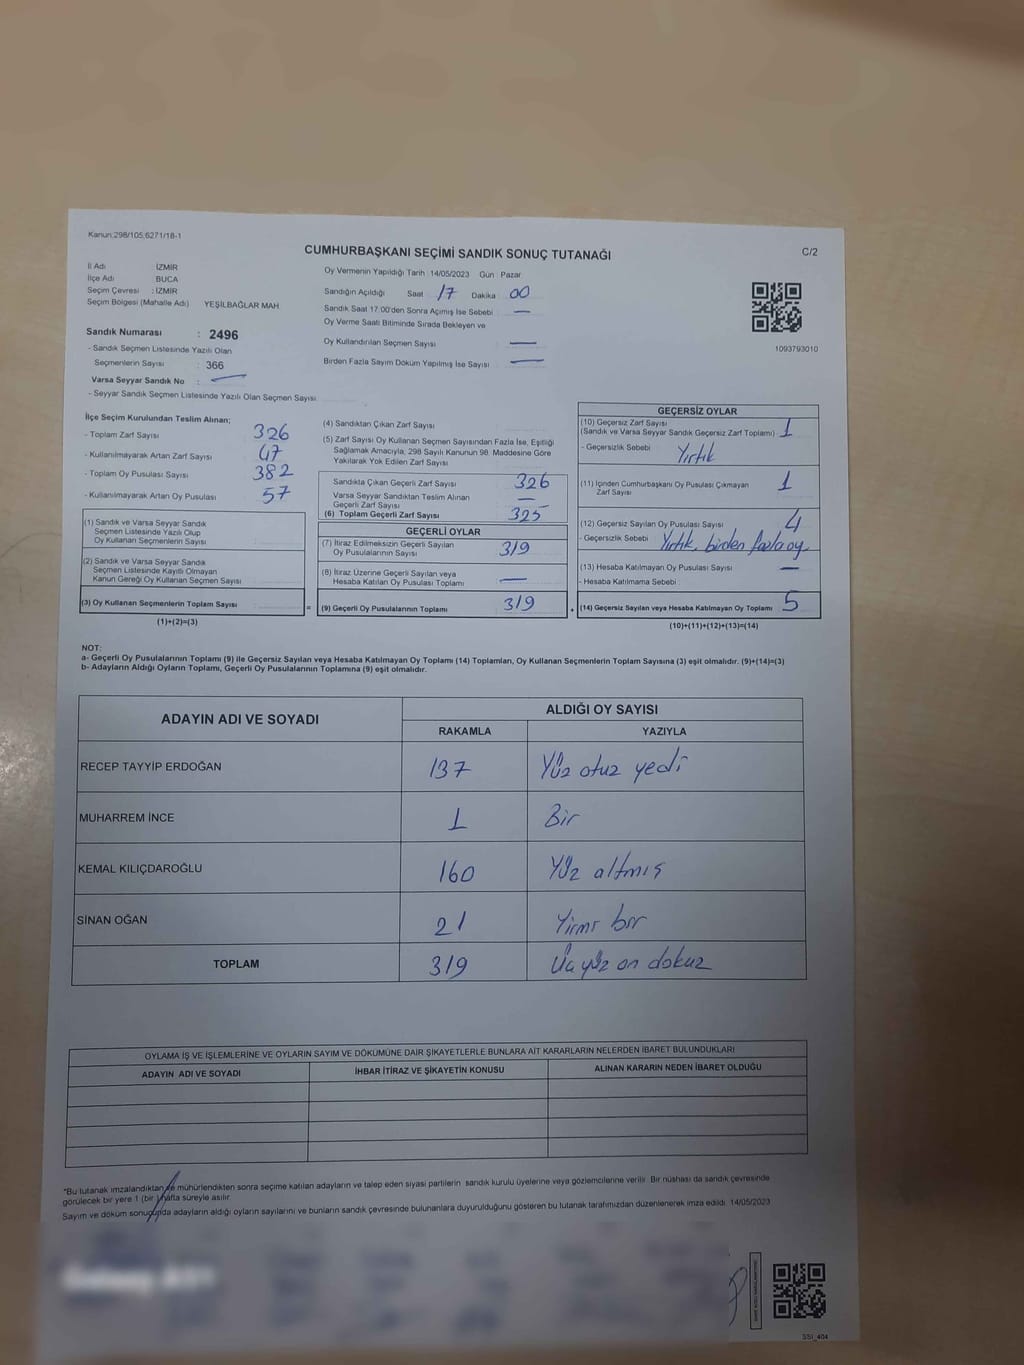 Kanun:298/105,6271/18-1
CUMHURBAŞKANI SEÇİMİ SANDIK SONUÇ TUTANAĞI
C/2
İl Adı İZMİR
İlçe Adı BUCA
Seçim Çevresi : İZMİR
Seçim Bölgesi (Mahalle Adı) YEŞİLBAĞLAR MAH.
Oy Vermenin Yapıldığı Tarih : 14/05/2023 Gün : Pazar
Sandığın Açıldığı Saat 17 Dakika 00
Sandık Saat 17:00'den Sonra Açımış İse Sebebi —
Oy Verme Saati Bitiminde Sırada Bekleyen ve
Oy Kullandırılan Seçmen Sayısı —
Birden Fazla Sayım Döküm Yapılmış İse Sayısı —
1093793010
Sandık Numarası : 2496
- Sandık Seçmen Listesinde Yazılı Olan
Seçmenlerin Sayısı : 366
Varsa Seyyar Sandık No : —
- Seyyar Sandık Seçmen Listesinde Yazılı Olan Seçmen Sayısı
İlçe Seçim Kurulundan Teslim Alınan;
- Toplam Zarf Sayısı 326
- Kullanılmayarak Artan Zarf Sayısı 47
- Toplam Oy Pusulası Sayısı 382
- Kullanılmayarak Artan Oy Pusulası 57
(1) Sandık ve Varsa Seyyar Sandık
Seçmen Listesinde Yazılı Olup
Oy Kullanan Seçmenlerin Sayısı
(2) Sandık ve Varsa Seyyar Sandık
Seçmen Listesinde Kayıtlı Olmayan
Kanun Gereği Oy Kullanan Seçmen Sayısı
(3) Oy Kullanan Seçmenlerin Toplam Sayısı
(1)+(2)=(3)
=
(4) Sandıktan Çıkan Zarf Sayısı
(5) Zarf Sayısı Oy Kullanan Seçmen Sayısından Fazla İse, Eşitliği
Sağlamak Amacıyla, 298 Sayılı Kanunun 98. Maddesine Göre
Yakılarak Yok Edilen Zarf Sayısı
Sandıkta Çıkan Geçerli Zarf Sayısı 326
Varsa Seyyar Sandıktan Teslim Alınan
Geçerli Zarf Sayısı —
(6) Toplam Geçerli Zarf Sayısı 325
GEÇERLİ OYLAR
(7) İtiraz Edilmeksizin Geçerli Sayılan
Oy Pusulalarının Sayısı 319
(8) İtiraz Üzerine Geçerli Sayılan veya
Hesaba Katılan Oy Pusulası Toplamı —
(9) Geçerli Oy Pusulalarının Toplamı 319
GEÇERSİZ OYLAR
(10) Geçersiz Zarf Sayısı
(Sandık ve Varsa Seyyar Sandık Geçersiz Zarf Toplamı) 1
- Geçersizlik Sebebi Yırtık
(11) İçinden Cumhurbaşkanı Oy Pusulası Çıkmayan
Zarf Sayısı 1
(12) Geçersiz Sayılan Oy Pusulası Sayısı 4
- Geçersizlik Sebebi Yırtık, birden fazla oy
(13) Hesaba Katılmayan Oy Pusulası Sayısı —
- Hesaba Katılmama Sebebi
(14) Geçersiz Sayılan veya Hesaba Katılmayan Oy Toplamı 5
(10)+(11)+(12)+(13)=(14)
NOT:
a- Geçerli Oy Pusulalarının Toplamı (9) ile Geçersiz Sayılan veya Hesaba Katılmayan Oy Toplamı (14) Toplamları, Oy Kullanan Seçmenlerin Toplam Sayısına (3) eşit olmalıdır. (9)+(14)=(3)
b- Adayların Aldığı Oyların Toplamı, Geçerli Oy Pusulalarının Toplamına (9) eşit olmalıdır.
ADAYIN ADI VE SOYADI ALDIĞI OY SAYISI
RAKAMLA YAZIYLA
RECEP TAYYİP ERDOĞAN 137 Yüz otuz yedi
MUHARREM İNCE 1 Bir
KEMAL KILIÇDAROĞLU 160 Yüz altmış
SİNAN OĞAN 21 Yirmi bir
TOPLAM 319 Üçyüz on dokuz
OYLAMA İŞ VE İŞLEMLERİNE VE OYLARIN SAYIM VE DÖKÜMÜNE DAİR ŞİKAYETLERLE BUNLARA AİT KARARLARIN NELERDEN İBARET BULUNDUKLARI
ADAYIN ADI VE SOYADI İHBAR İTİRAZ VE ŞİKAYETİN KONUSU ALINAN KARARIN NEDEN İBARET OLDUĞU
*Bu tutanak imzalandıktan ve mühürlendikten sonra seçime katılan adayların ve talep eden siyasi partilerin sandık kurulu üyelerine veya gözlemcilerine verilir. Bir nüshası da sandık çevresinde
görülecek bir yere 1 (bir) hafta süreyle asılır.
Sayım ve döküm sonucunda adayların aldığı oyların sayılarını ve bunların sandık çevresinde bulunanlara duyurulduğunu gösteren bu tutanak tarafımızdan düzenlenerek imza edildi. 14/05/2023
SSI_404